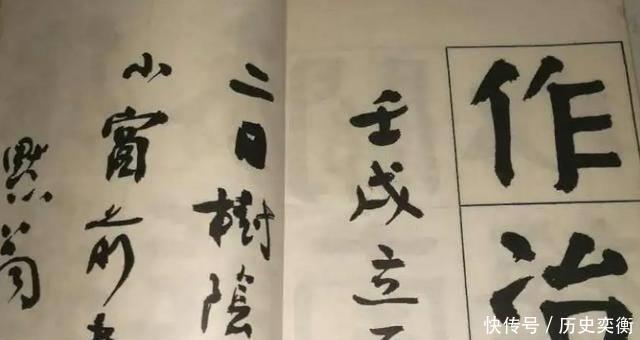 作治
壬戌立
二日樹陰
小窗前
默翁
快传号 / 历史奕衡